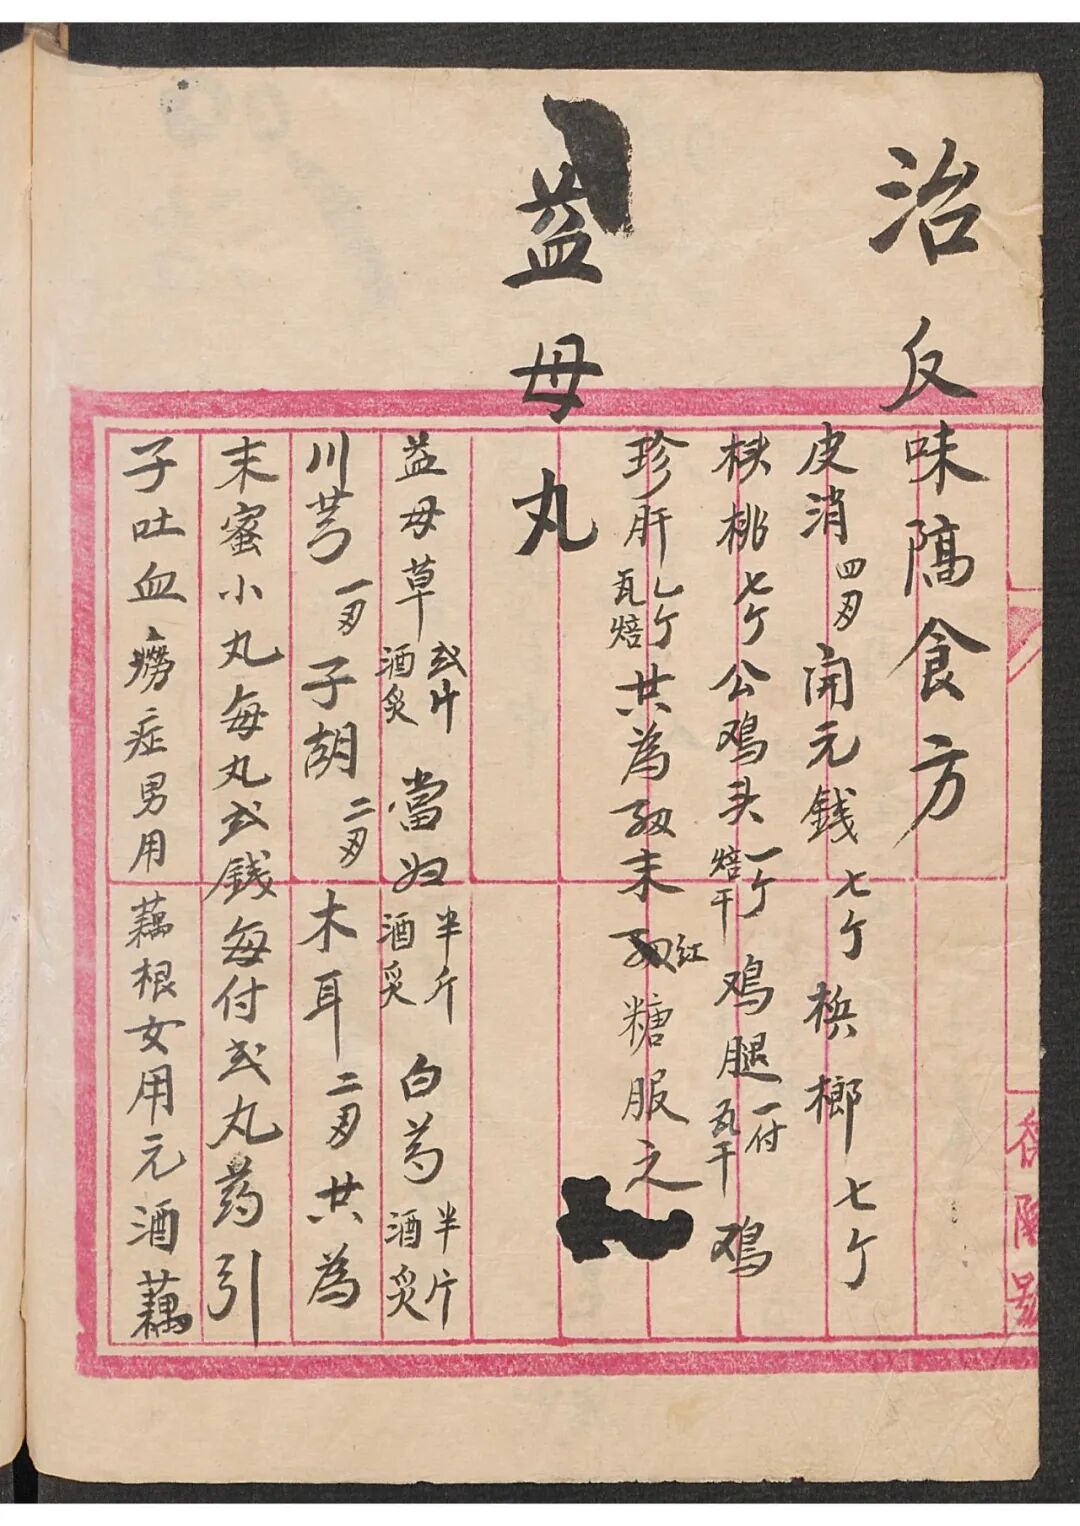 治反味隔食方
皮消四刄開元錢七个梹榔七个
核桃七个公鸡头一个焙干鸡腿一付瓦干鸡
珍肝乙个瓦焙共為細末红糖服之
益母丸
益母草弍斤酒炙當归半斤酒炙白芍半斤酒炙
川芎一刄子胡二刄木耳二刄共為
末蜜小丸每丸弍錢每付弍丸药引
子吐血痨症男用藕根女用元酒藕